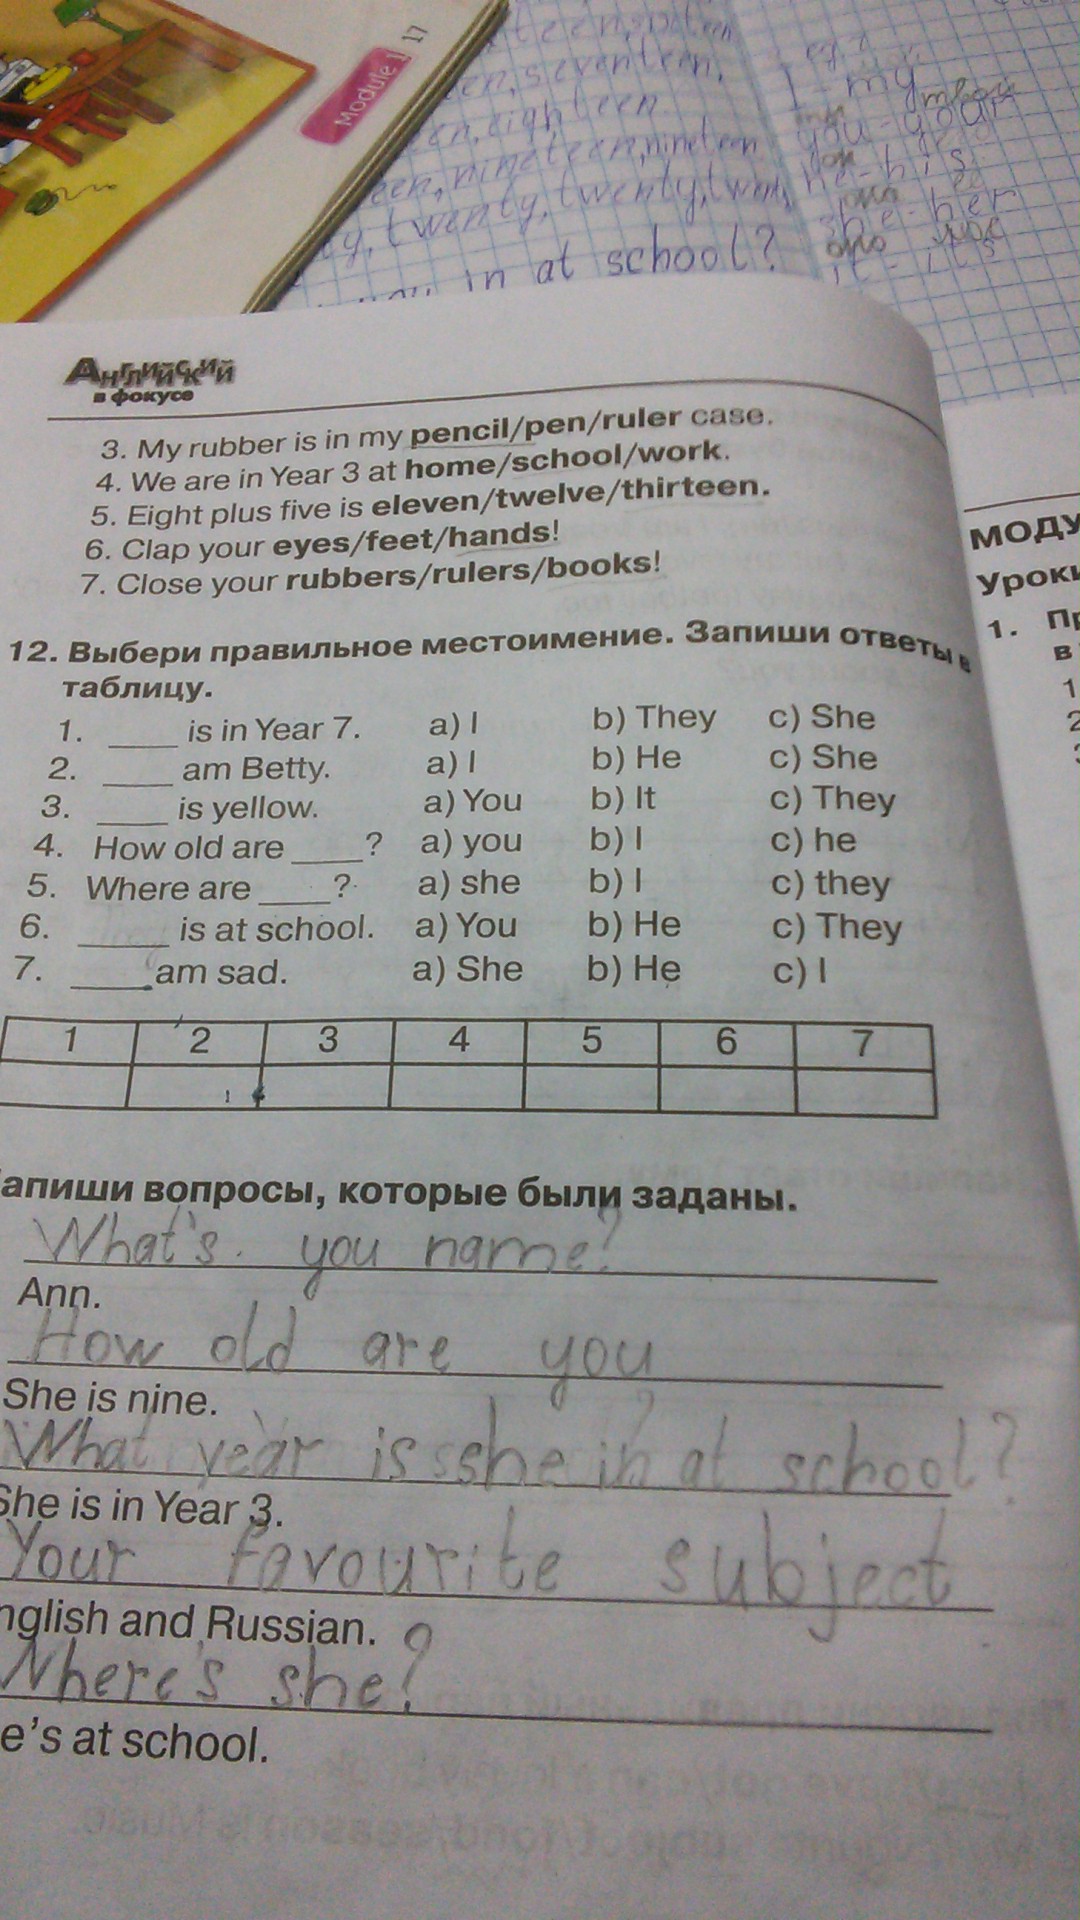 Module 1 17
teen, seventeen,
teen, eighteen
teen, nineteen, nineteen
ty, twenty, twenty, twenty,
in at school?
I - my
твой
you - your
он
he - his
она её
she - her
оно
it - its
Английский
в фокусе
3. My rubber is in my pencil/pen/ruler case.
4. We are in Year 3 at home/school/work.
5. Eight plus five is eleven/twelve/thirteen.
6. Clap your eyes/feet/hands!
7. Close your rubbers/rulers/books!
12. Выбери правильное местоимение. Запиши ответы в
таблицу.
1. ____ is in Year 7. a) I b) They c) She
2. ____ am Betty. a) I b) He c) She
3. ____ is yellow. a) You b) It c) They
4. How old are ____? a) you b) I c) he
5. Where are ____? a) she b) I c) they
6. ____ is at school. a) You b) He c) They
7. ____ am sad. a) She b) He c) I
1 2 3 4 5 6 7
апиши вопросы, которые были заданы.
What's you name?
Ann.
How old are you
She is nine.
What year is she in at school?
She is in Year 3.
Your favourite subject
nglish and Russian.
Where's she?
e's at school.
МОДУ
Уроки
1. Пр
в
1
2
3